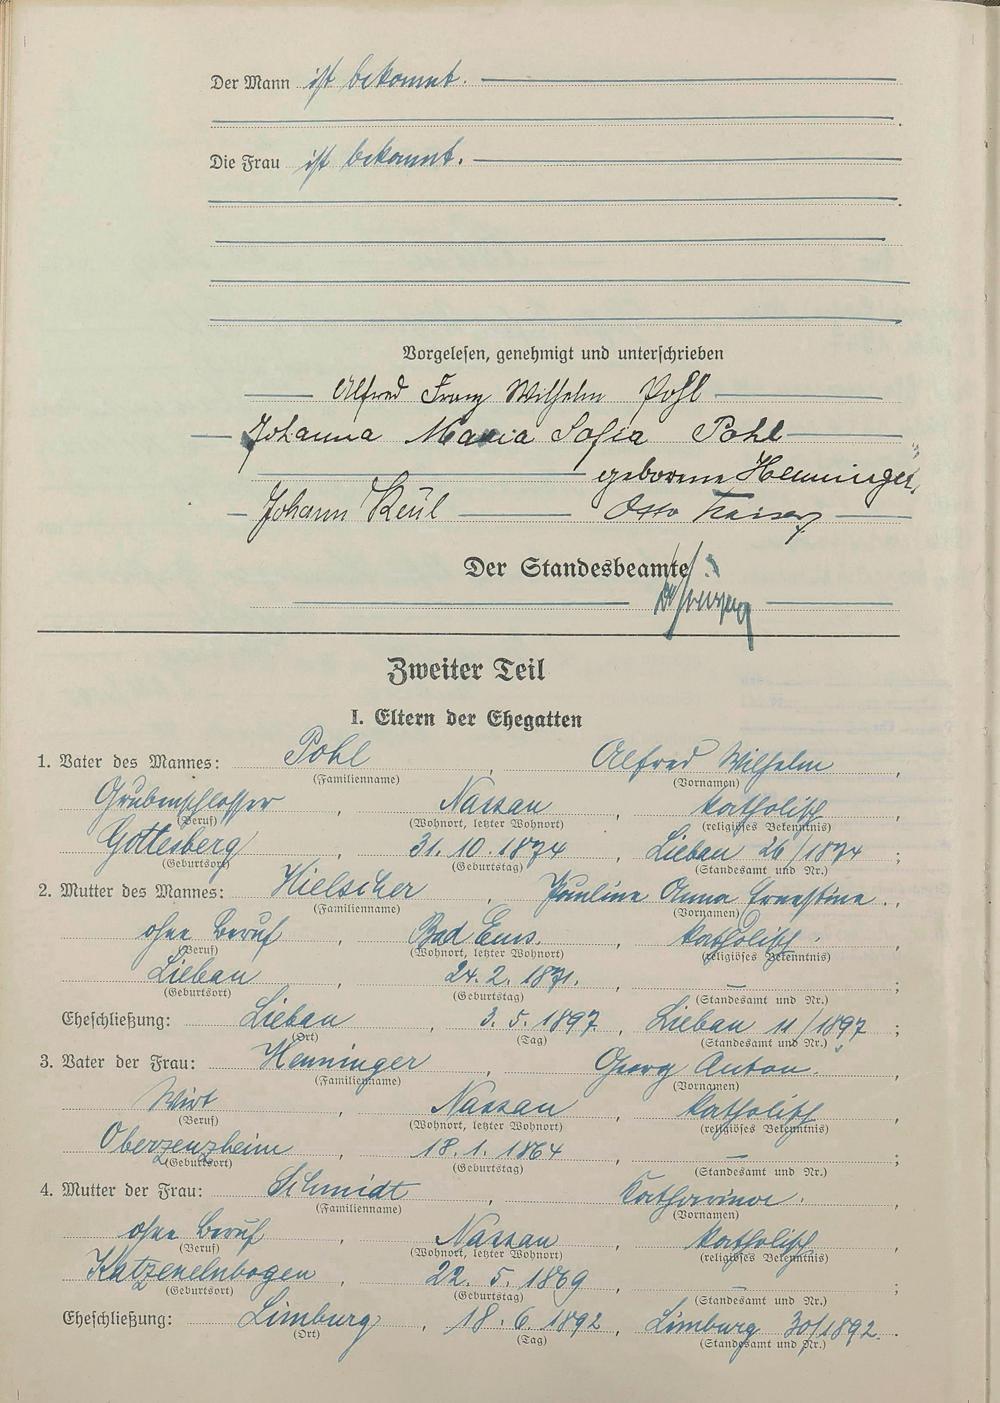 Der Mann ist bekannt.
Die Frau ist bekannt.
Vorgelesen, genehmigt und unterschrieben
Alfred Franz Wilhelm Pohl
Johanna Maria Sofia Pohl
geborene Henninger
Johann Keül Otto
Der Standesbeamte
Zweiter Teil
I. Eltern der Ehegatten
1. Vater des Mannes: Pohl, Alfred Wilhelm,
(Familienname) (Vornamen)
Grubenschlosser, Nassau, katholisch,
(Beruf) (Wohnort, letzter Wohnort) (religiöses Bekenntnis)
Gottesberg, 31. 10. 1874, Liebau 26/1874;
(Geburtsort) (Geburtstag) (Standesamt und Nr.)
2. Mutter des Mannes: Hielscher, Pauline Anna Ernestine.,
(Familienname) (Vornamen)
ohne Beruf, Bad Ems., katholisch.,
(Beruf) (Wohnort, letzter Wohnort) (religiöses Bekenntnis)
Liebau, 24. 2. 1871., —;
(Geburtsort) (Geburtstag) (Standesamt und Nr.)
Eheschließung: Liebau, 3. 5. 1897, Liebau 11/1897;
(Ort) (Tag) (Standesamt und Nr.)
3. Vater der Frau: Henninger, Georg Anton.,
(Familienname) (Vornamen)
Wirt, Nassau, katholisch,
(Beruf) (Wohnort, letzter Wohnort) (religiöses Bekenntnis)
Oberzeuzheim, 18. 1. 1864, —;
(Geburtsort) (Geburtstag) (Standesamt und Nr.)
4. Mutter der Frau: Schmidt, Katharina.,
(Familienname) (Vornamen)
ohne Beruf, Nassau, katholisch,
(Beruf) (Wohnort, letzter Wohnort) (religiöses Bekenntnis)
Katzenelnbogen, 22. 5. 1869, —;
(Geburtsort) (Geburtstag) (Standesamt und Nr.)
Eheschließung: Limburg, 18. 6. 1892, Limburg 30/1892.
(Ort) (Tag) (Standesamt und Nr.)